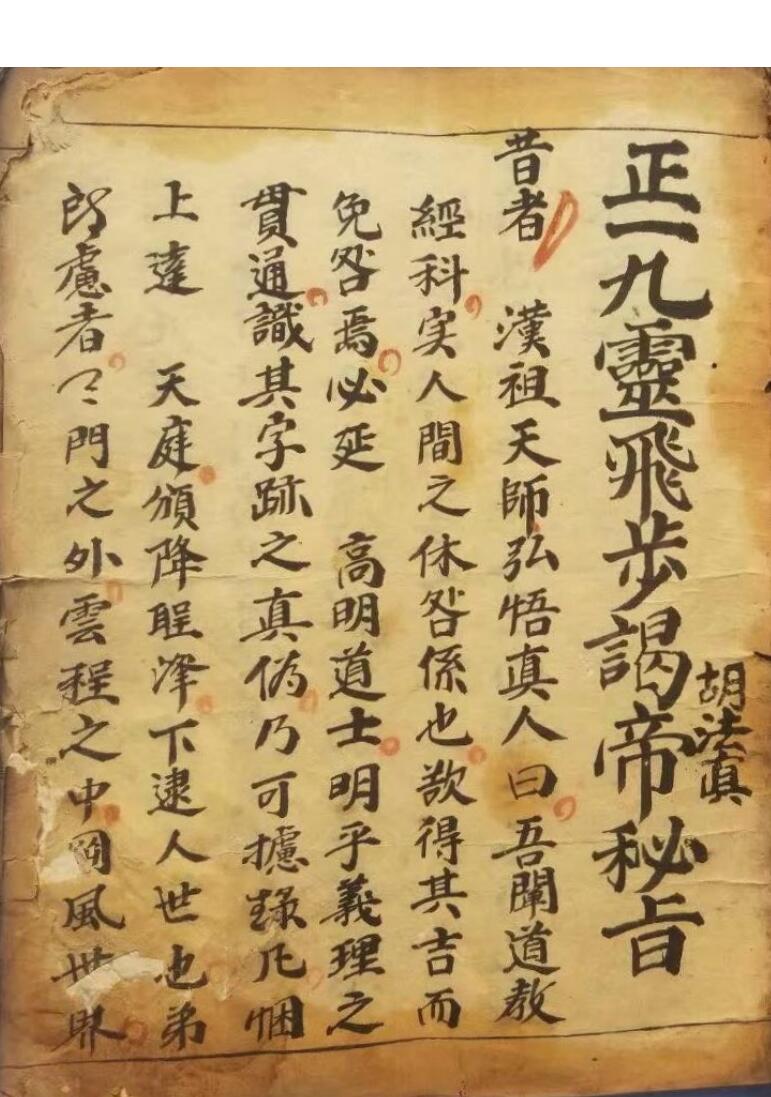 正一九靈飛步謁帝秘旨
胡法真
昔者 漢祖天師弘悟真人曰吾闡道教
經科实人間之休咎係也欲得其吉而
免咎焉必延 高明道士明乎義理之
貫通識其字跡之真偽乃可據錄凡悃
上達 天庭頒降 下逮人世也弟
慮者 門之外雲程之中 風世界